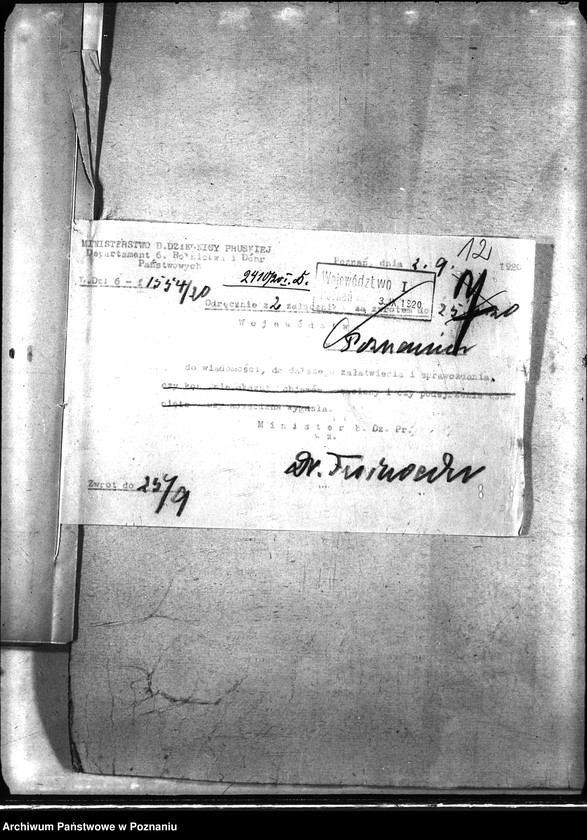 12
MINISTERSTWO B.DZIELNICY PRUSKIEJ
Departament 6. Rolnictwa i Dóbr
Państwowych
Poznań, dnia 2. 9. 1920
L.Dz: 6 - 1554/20
2410/20 I. D.
Województwo I
Poznań
3.IX.1920
Odręcznie z 2 załącznik za zwrotem do 25/ 20
Województwu
Poznaniu
do wiadomości, do dalszego załatwienia i sprawozdania,
czy objawów i czy podejrzenie
wygasła.
Minister b. Dz. Pr.
w z.
Dr.
Zwrot do 25/9
8 8
Archiwum Państwowe w Poznaniu